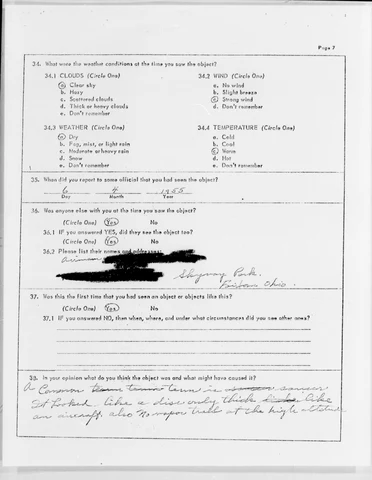 Page 7
34. What were the weather conditions at the time you saw the object?
34.1 CLOUDS (Circle One) 34.2 WIND (Circle One)
a. Clear sky a. No wind
b. Hazy b. Slight breeze
c. Scattered clouds c. Strong wind
d. Thick or heavy clouds d. Don't remember
e. Don't remember
34.3 WEATHER (Circle One) 34.4 TEMPERATURE (Circle One)
a. Dry a. Cold
b. Fog, mist, or light rain b. Cool
c. Moderate or heavy rain c. Warm
d. Snow d. Hot
e. Don't remember e. Don't remember
35. When did you report to some official that you had seen the object?
6 4 1955
Day Month Year
36. Was anyone else with you at the time you saw the object?
(Circle One) Yes No
36.1 IF you answered YES, did they see the object too?
(Circle One) Yes No
36.2 Please list their names and addresses:
Skyway Park
Fairborn Ohio.
37. Was this the first time that you had seen an object or objects like this?
(Circle One) Yes No
37.1 IF you answered NO, then when, where, and under what circumstances did you see other ones?
38. In your opinion what do you think the object was and what might have caused it?
A Common term is saucer
It Looked like a disc only thick like
an aircraft also No vapor trail at the high altitude